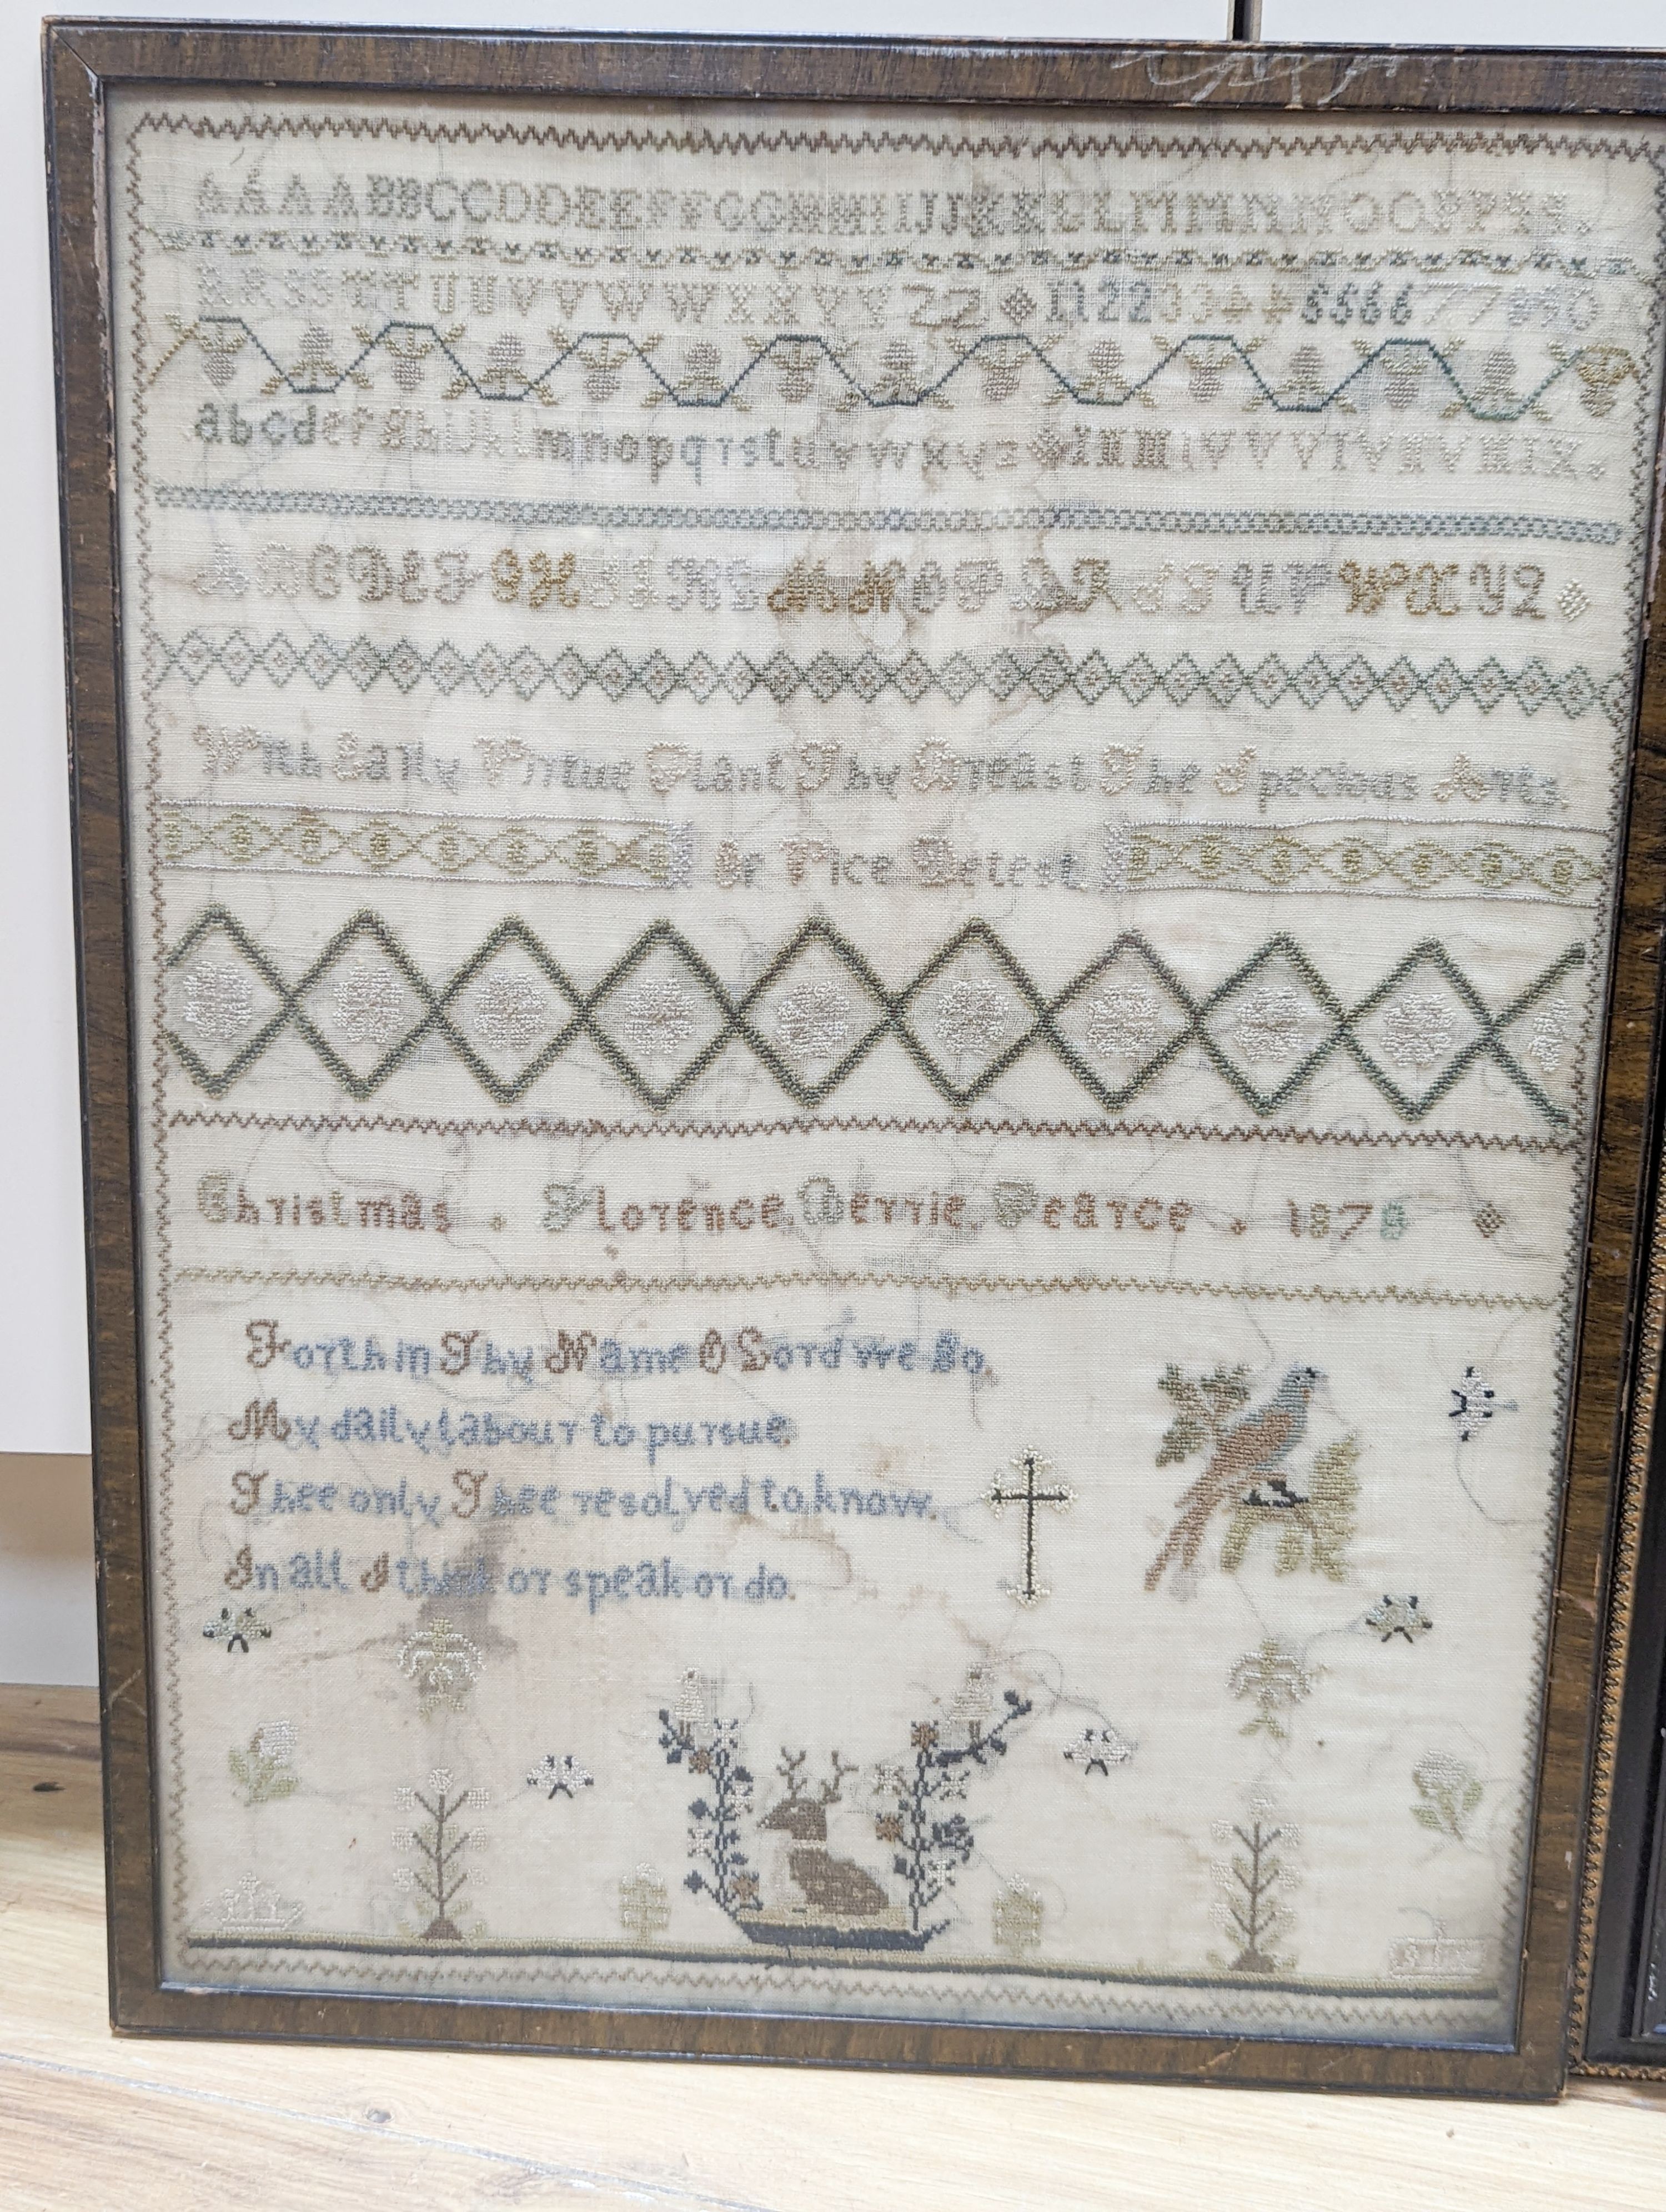 AAAABBCCDDEEFFGGHHIIJJKKLLMMNNOOPP
RRSSTTUUVVWWXXYYZZ 11223344556677890
abcdefghijklmnopqrstuvwxyz I II III IV V VI VII VIII IX X.
ABCDEFGHIJKLMNOPQRSTUVWXYZ
With Early Virtue Plant Thy Breast The Specious Arts
Of Vice Detest
Christmas. Florence Gerrie Pearce. 1878
Forth in Thy Name O Lord we Go.
My daily labour to pursue.
Thee only Thee resolved to know.
In all I think or speak or do.